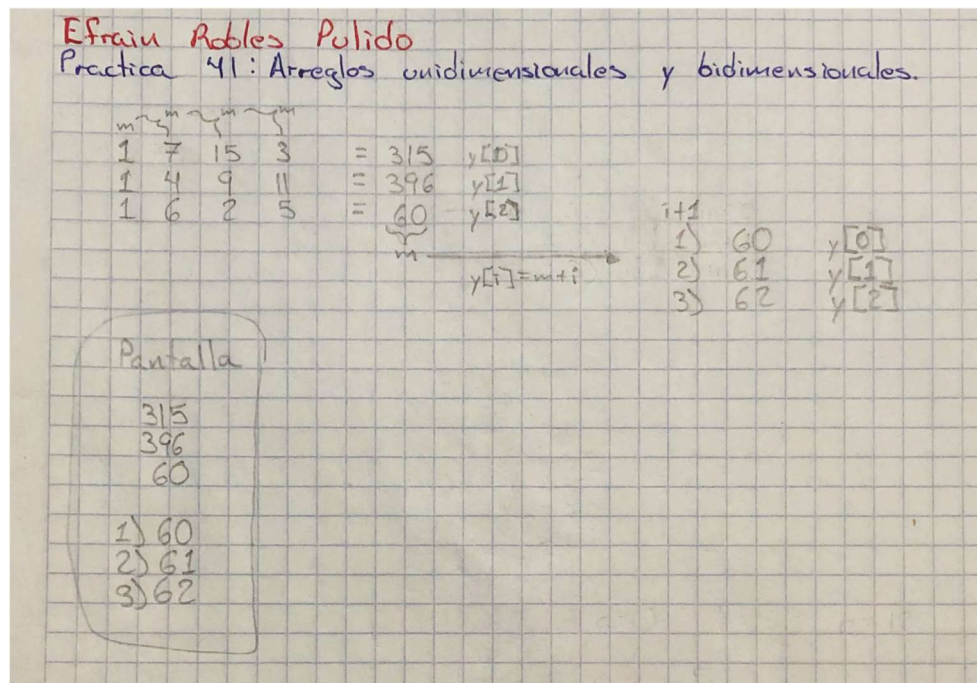 Efrain Robles Pulido
Practica 41: Arreglos unidimensionales y bidimensionales.
m m m m
1 7 15 3 = 315 y[0]
1 4 9 11 = 396 y[1]
1 6 2 5 = 60 y[2]
m
y[i]=m+i
i+1
1) 60 y[0]
2) 61 y[1]
3) 62 y[2]
Pantalla
315
396
60
1) 60
2) 61
3) 62